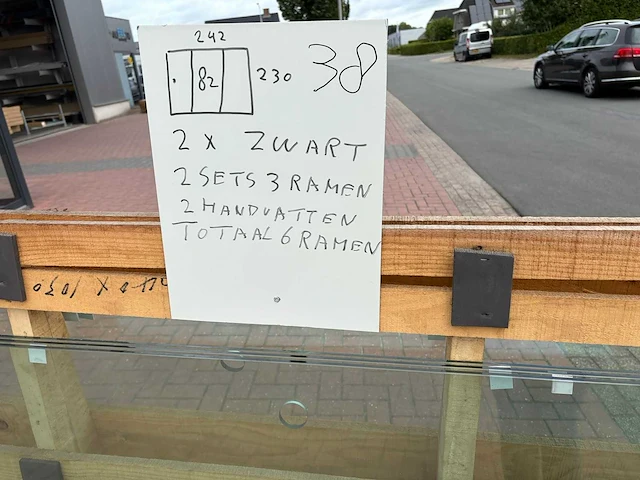 242
82
230
38
2 x ZWART
2 SETS 3 RAMEN
2 HANDVATTEN
TOTAAL 6 RAMEN